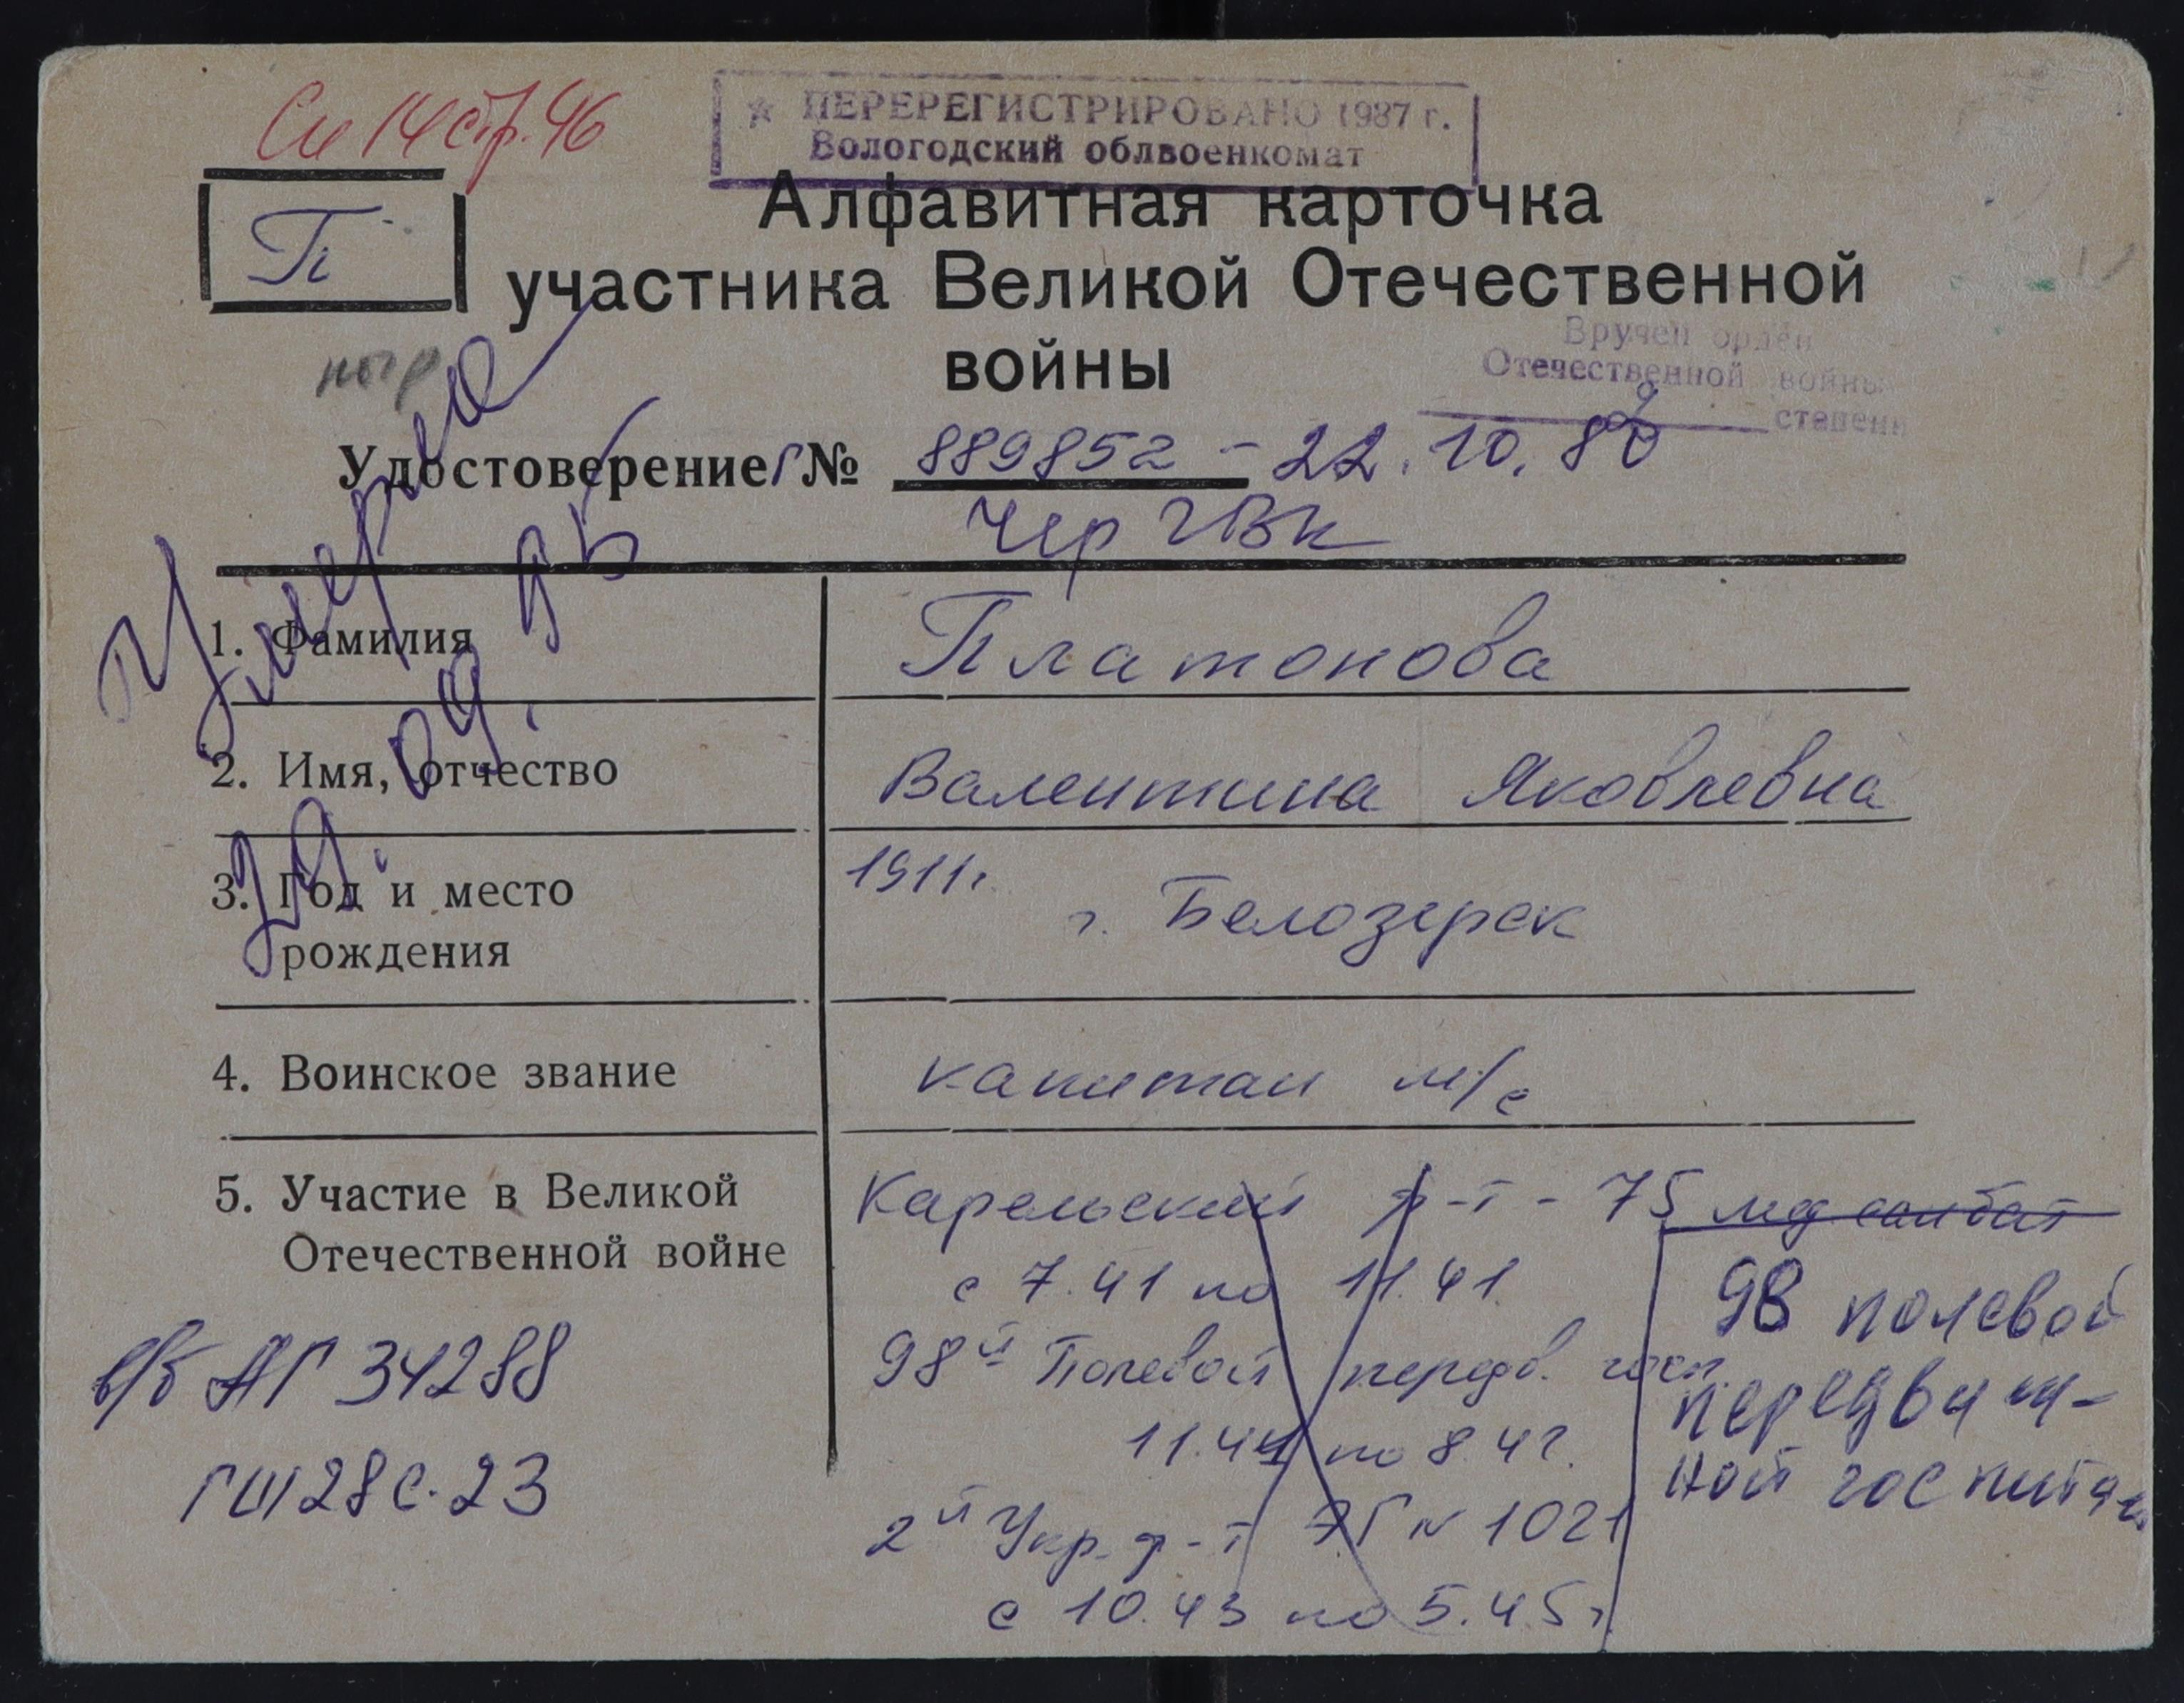 См 14 стр. 46
☆ ПЕРЕРЕГИСТРИРОВАНО 1987 г.
Вологодский облвоенкомат
П
Алфавитная карточка
участника Великой Отечественной
войны
Вручен орден
Отечественной войны
степени
Удостоверение Г № 889852 - 22.10.80
Чер ГВК
Умерла
09.
1. Фамилия Платонова
2. Имя, отчество Валентина Яковлевна
3. Год и место рождения 1911г.
г. Белозерск
4. Воинское звание капитан м/с
5. Участие в Великой Отечественной войне
Карельский ф-т - 75 мед санбат
с 7.41 по 11.41.
98й Полевой передв. госп.
11.41 по 8.42.
2й Укр. ф-т ЭГ № 1021
с 10.43 по 5.45 г
98 полевой
передвиж-
ной госпиталь
в/б АГ 34288
ГШ 28 с. 23